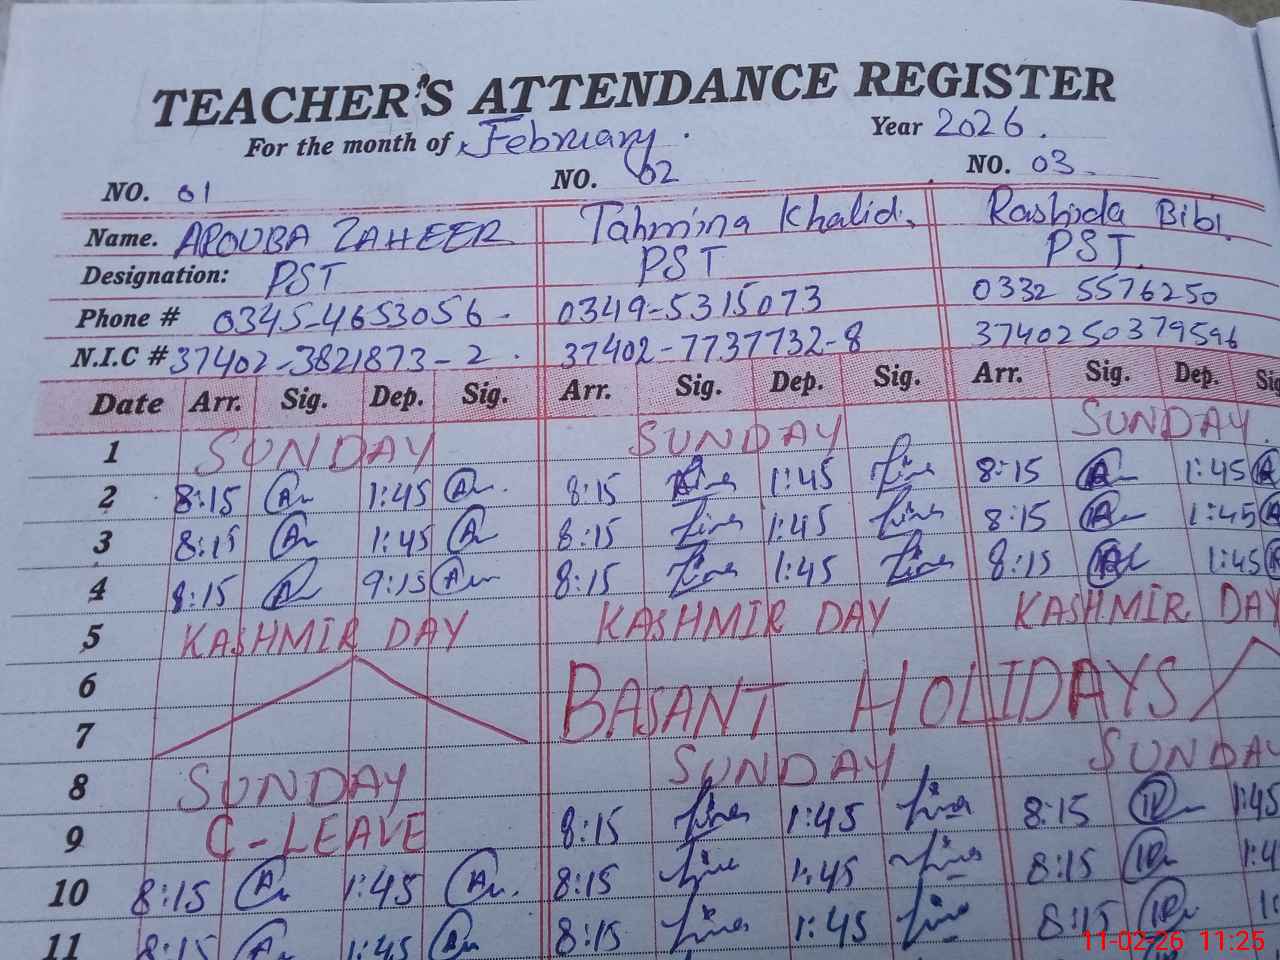 TEACHER'S ATTENDANCE REGISTER
For the month of February. Year 2026.
NO. 01 NO. 02 NO. 03
Name. AROUBA ZAHEER Tahmina Khalid. Rashida Bibi.
Designation: PST PST PST.
Phone # 0345-4653056. 0349-5315073 0332 5576250
N.I.C # 37402-3821873-2. 37402-7737732-8 3740250379596
Date Arr. Sig. Dep. Sig. Arr. Sig. Dep. Sig. Arr. Sig. Dep. Sig
1 SUNDAY SUNDAY SUNDAY.
2 8:15 1:45 8:15 1:45 8:15 1:45
3 8:15 1:45 8:15 1:45 8:15 1:45
4 8:15 9:15 8:15 1:45 8:15 1:45
5 KASHMIR DAY KASHMIR DAY KASHMIR DAY
6 BASANT HOLIDAYS
7
8 SUNDAY SUNDAY SUNDAY
9 C-LEAVE 8:15 1:45 8:15 1:45
10 8:15 1:45 8:15 1:45 8:15 1:4
11 8:15 1:45 8:15 1:45 8:15
11-02-26 11:25